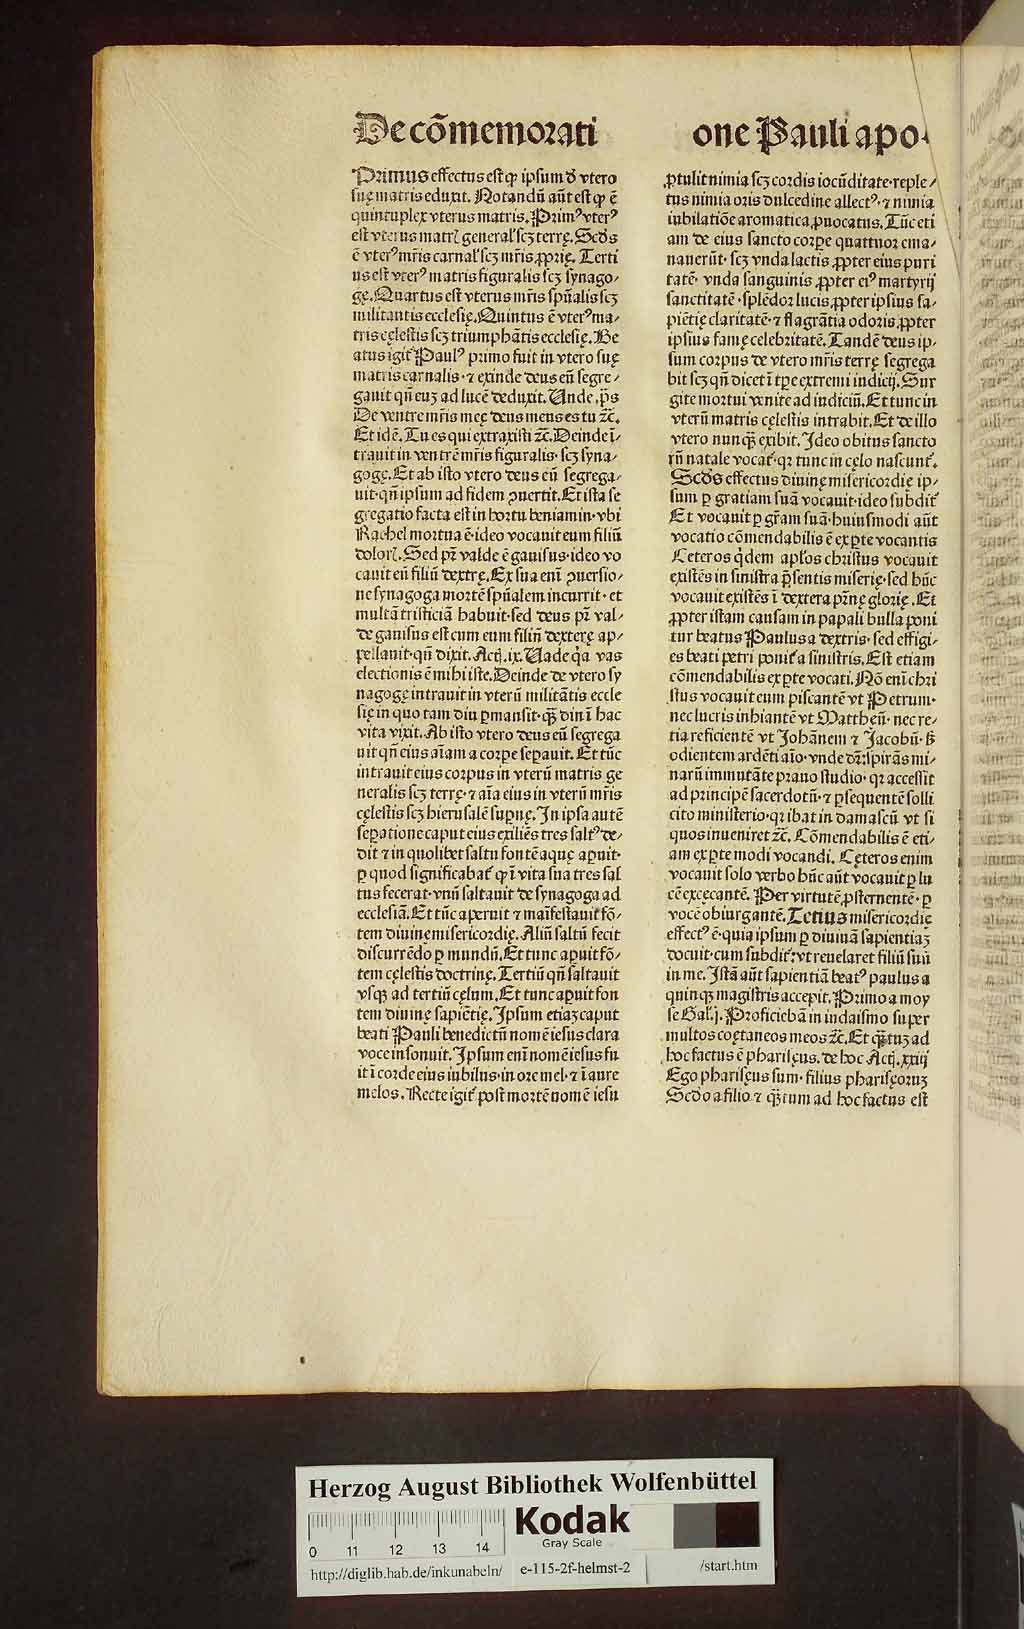 De cōmemorati
Primus effectus est ꝙ ipsum ď vtero
suę matris eduxit. Notandū aūt est ꝙ ē
quintuplex vterus matris. Primꝰ vterꝰ
est vterus matrꝭ general' scꝫ terrę. Scd's
ē vterꝰ mr̄is carnal' scꝫ mr̄is ꝓprię. Terti
us est vterꝰ matris figuralis scꝫ synago⸗
gę. Quartus est vterus mr̄is spūalis scꝫ
militantis ecclesię. Quintus ē vterꝰ ma⸗
tris cęlestis scꝫ triumphātis ecclesię. Be
atus igit᷑ Paulꝰ primo fuit in vtero suę
matris carnalis· ⁊ exinde deus eū segre⸗
gauit qn̄ euꝫ ad lucē deduxit. Unde. p̄s
De ventre mr̄is meę deus meus es tu ⁊c̄.
Et idē. Tu es qui extraxisti ⁊c̄. Deinde ī⸗
trauit in ventrē mr̄is figuralis· scꝫ syna⸗
gogę. Et ab isto vtero deus eū segrega⸗
uit·qn̄ ipsum ad fidem ꝯuertit. Et ista se
gregatio facta est in hortu beniamin·vbi
Rachel mortua ē·ideo vocauit eum filiū
dolorꝭ. Sed pr̄ valde ē gauisus·ideo vo
cauit eū filiū dextrę. Ex sua enī ꝯuersio⸗
ne synagoga mortē spūalem incurrit· et
multā tristiciā habuit·sed deus pr̄ val⸗
de gauisus est cum eum filiū dexterę ap⸗
pellauit·qn̄ dixit. Actꝭ. ix. Uade q̄a vas
electionis ē mihi iste. Deinde de vtero sy
nagogę intrauit in vterū militātis eccle
się in quo tam diu ꝑmansit·qꝫ̄ diu ī hac
vita vixit. Ab isto vtero deus eū segrega
uit qn̄ eius aīam a corpe seꝑauit. Et tūc
intrauit eius corpus in vterū matris ge
neralis scꝫ terrę·⁊ aīa eius in vterū mr̄is
cęlestis scꝫ hierusalē suꝑnę. In ipsa autē
seꝑatione caput eius exiliēs tres saltꝰ de⸗
dit ⁊ in quolibet saltu fontē aquę aꝑuit·
ꝑ quod significabat᷑ ꝙ ī vita sua tres sal
tus fecerat·vnū saltauit de synagoga ad
ecclesiā. Et tūc aperuit ⁊ māifestauit fō⸗
tem diuinę misericordię. Aliū saltū fecit
discurrēdo ꝑ mundū. Et tunc aꝑuit fō⸗
tem cęlestis doctrinę. Tertiū qn̄ saltauit
vsqꝫ ad tertiū cęlum. Et tunc aꝑuit fon
tem diuinę sapiētię. Ipsum etiaꝫ caput
beati Pauli benedictū nomē iesus clara
voce insonuit. Ipsum enī nomē iesus fu
it ī corde eius iubilus·in ore mel·⁊ ī aure
melos. Recte igit᷑ post mortē nomē iesu
one Pauli apo⸗
ꝓtulit nimia scꝫ cordis iocūditate·reple⸗
tus nimia oris dulcedine allectꝰ·⁊ nimia
iubilatiōe aromatica ꝓuocatus. Tūc eti
am de eius sancto corꝑe quattuor ema⸗
nauerūt· scꝫ vnda lactis ꝓpter eius puri
tatē· vnda sanguinis ꝓpter eiꝰ martyrij
sanctitatē·splēdor lucis ꝓpter ipsius sa⸗
piētię claritatē·⁊ flagrātia odoris ꝓpter
ipsius famę celebritatē. Tandē deus ip⸗
sum corpus de vtero mr̄is terrę segrega
bit scꝫ qn̄ dicet ī tꝑe extremi iudicij. Sur
gite mortui venite ad iudiciū. Et tunc in
vterū matris cęlestis intrabit. Et de illo
vtero nunqꝫ̄ exibit. Ideo obitus sancto
rū natale vocat᷑·qꝛ tunc in cęlo nascunt᷑.
Scd's effectus diuinę misericordię ip⸗
sum ꝑ gratiam suā vocauit·ideo subdit᷑
Et vocauit ꝑ gr̄am suā·huiusmodi aūt
vocatio cōmendabilis ē ex ꝑte vocantis
Ceteros q̇dem apl'os christus vocauit
existēs in sinistra p̄sentis miserię·sed hūc
vocauit existēs ī dextera pr̄nę glorię. Et
ꝓpter istam causam in papali bulla poni
tur beatus Paulus a dextris·sed effigi⸗
es beati petri ponit᷑ a sinistris. Est etiam
cōmendabilis ex ꝑte vocati. Nō enī chri
stus vocauit eum piscantē vt Petrum·
nec lucris inhiantē vt Mattheū· nec re⸗
tia reficientē vt Johānem ⁊ Jacobū·ß
odientem ardēti aīo·vnde dr̄:spirās mi⸗
narū immutāte prauo studio·qꝛ accessit
ad principē sacerdotū·⁊ ꝑsequentē solli
cito ministerio·qꝛ ibat in damascū vt si
quos inueniret ⁊c̄. Cōmendabilis ē eti⸗
am ex ꝑte modi vocandi. Cęteros enim
vocauit solo verbo hūc aūt vocauit ꝑ lu
cē excęcantē. Per virtutē ꝓsternentē· ꝑ
vocē obiurgantē. Tetius misericordię
effectꝰ ē·quia ipsum ꝑ diuinā sapientiaꝫ
docuit·cum subdit᷑:vt reuelaret filiū suū
in me. Istā aūt sapientiā beatꝰ paulus a
quinqꝫ magistris accepit. Primo a moy
se Gal. j. Proficiebā in iudaismo super
multos coętaneos meos ⁊c̄. Et qꝫ̄tuꝫ ad
hoc factus ē pharisęus. de hoc Actꝭ. xxiij
Ego pharisęus sum· filius pharisęoruꝫ
Scdo a filio·⁊ qꝫ̄tum ad hoc factus est
Herzog August Bibliothek Wolfenbüttel
Kodak
Gray Scale
0 11 12 13 14
http://diglib.hab.de/inkunabeln/ e-115-2f-helmst-2 /start.htm